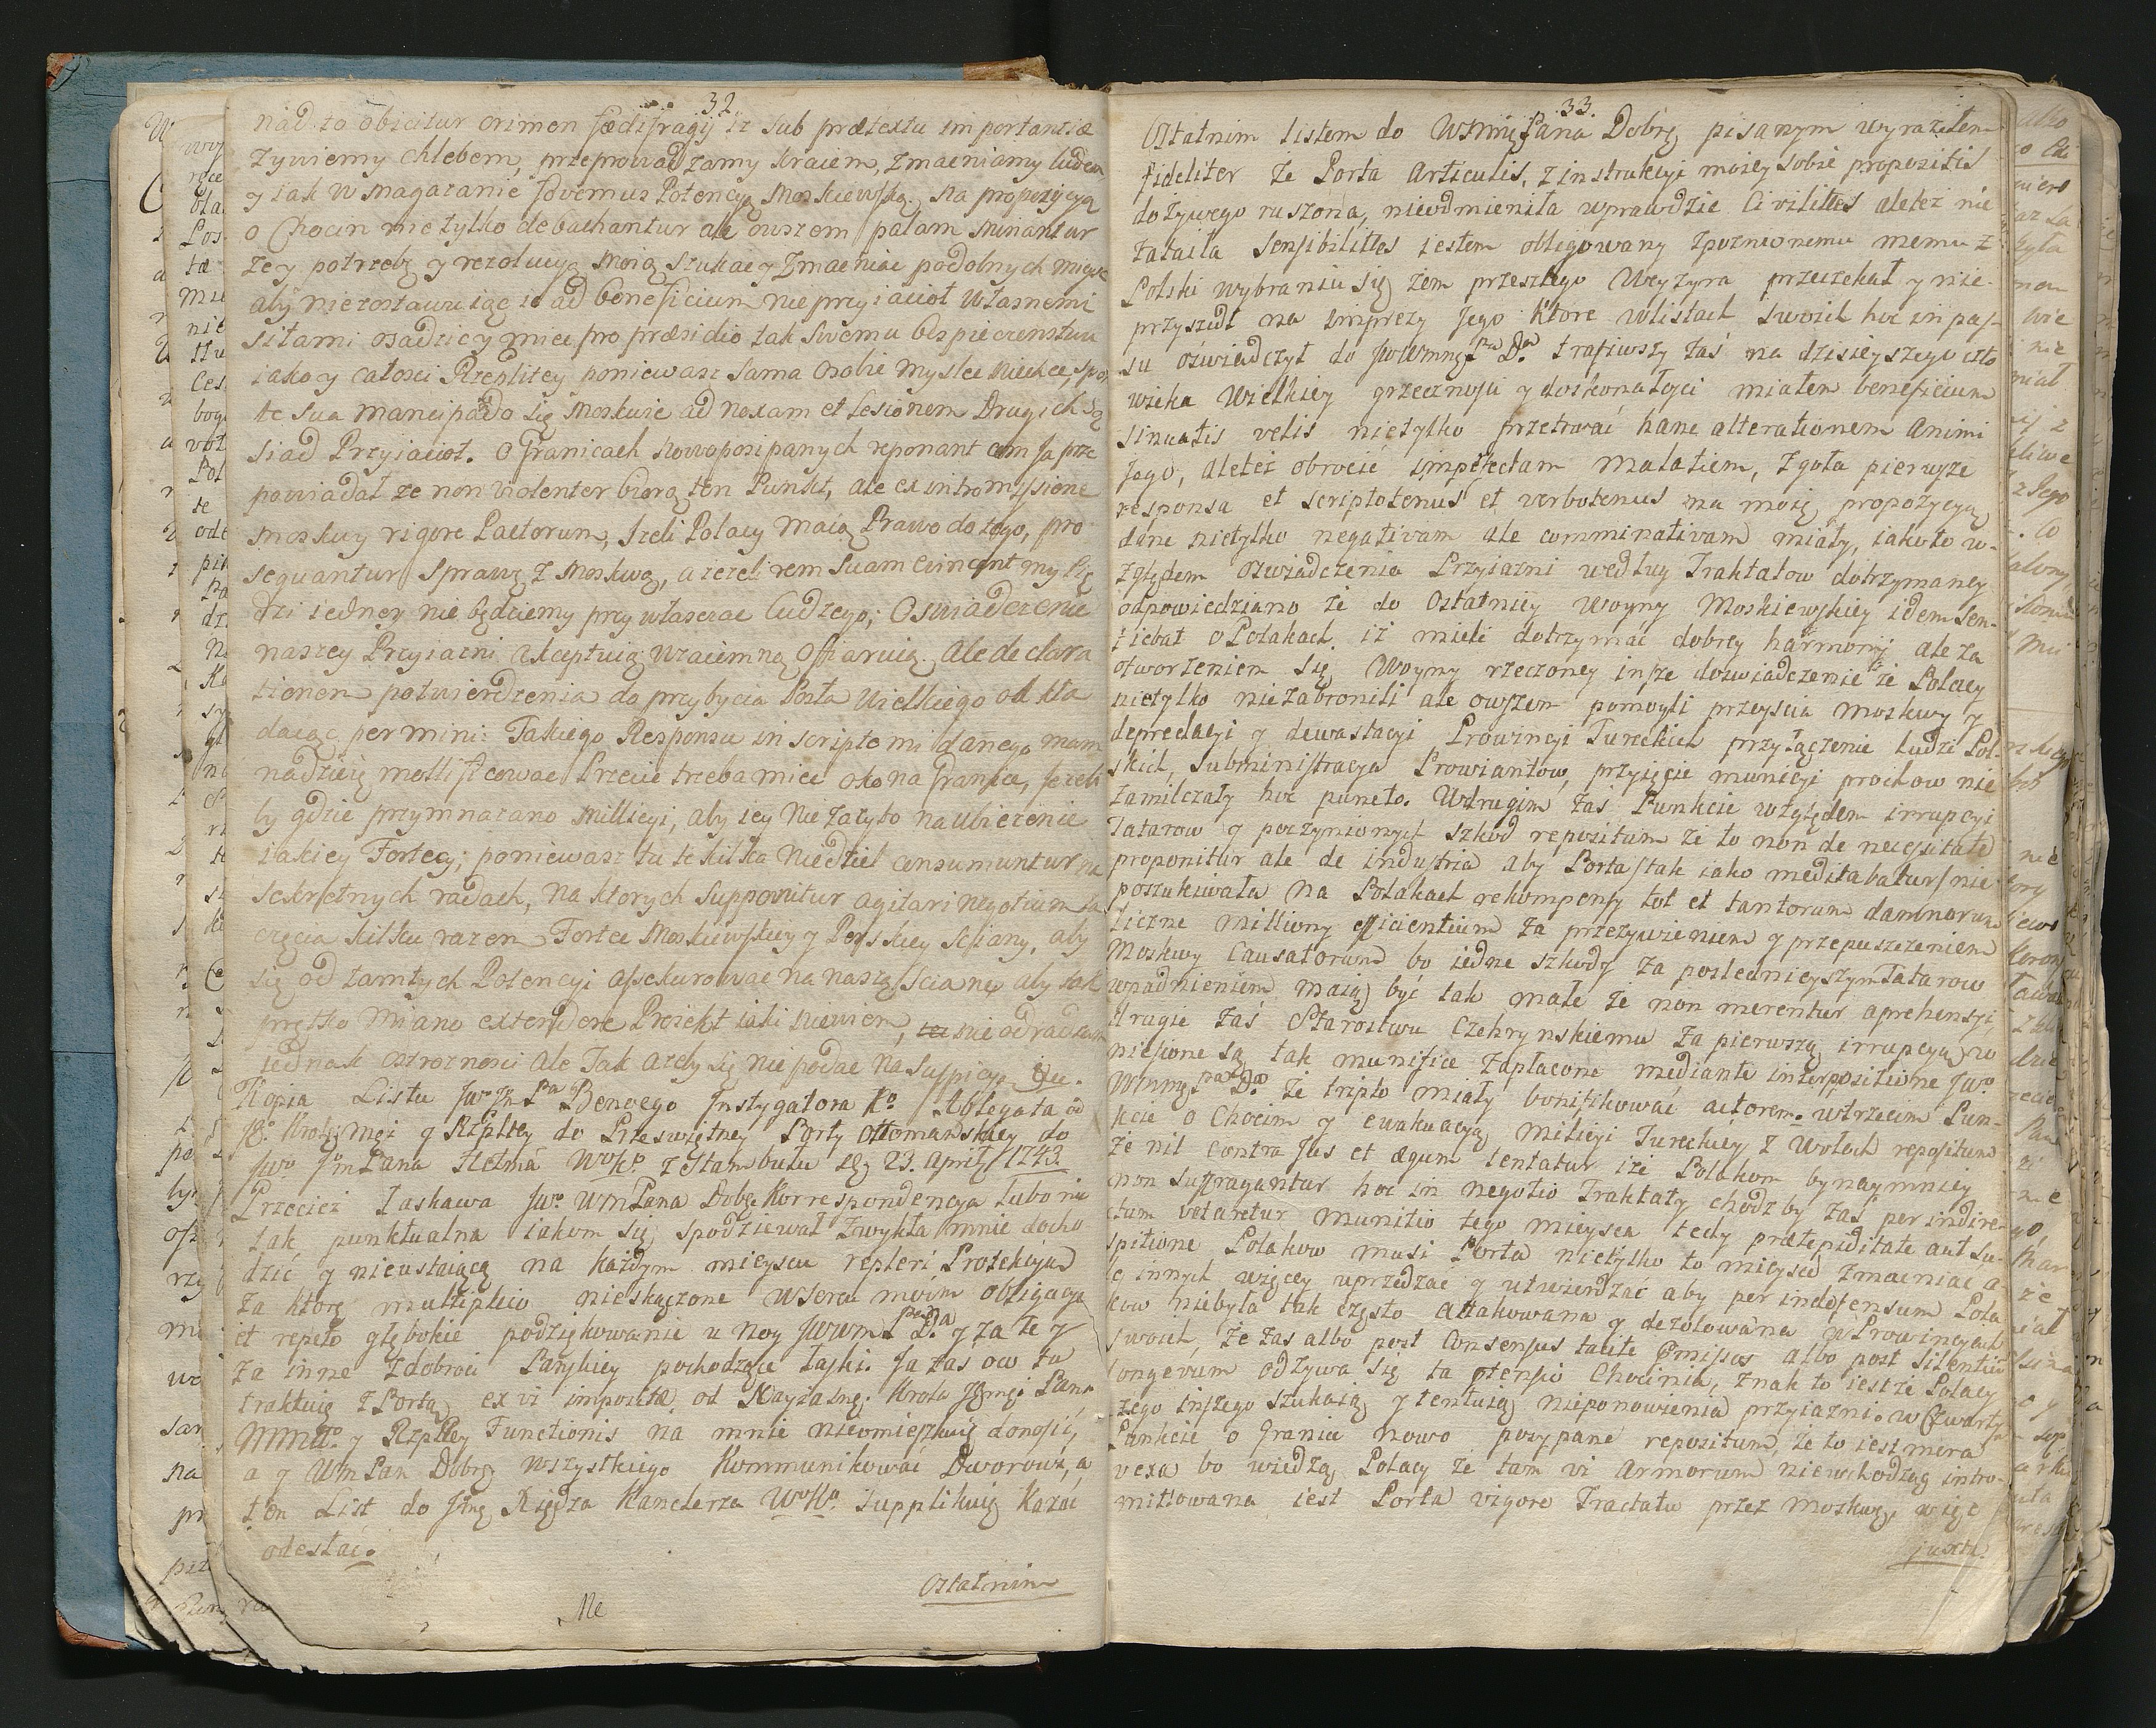 32.
nad to obicitur crimen fœdifragij iż sub prætextu importantiæ
żywiemy chlebem, przeprowadzamy kraiem, zmacniamy ludem
y iak w magazanie fovemus Potencyą Moskiewską. Na propozycyą
o Chocim nie tylko debachantur ale owszem palam minantur
że y potrzebę y rezolucyą maią szukac y zmacniac podobnych mieysc
aby niezostawuiąc ie ad beneficium nieprzyiacioł własnemi
siłami osadzic y miec pro præsidio tak swemu bespieczenstwu
iako y całosci Rzeplitey poniewasz sama o sobie myslec niechce, spon
te sua mancipando się Moskwie ad noxam et lesionem drugich są
siad Przyiacioł. O Granicach nowoposipanych reponant com ja prze
powiadał ze non violenter biorą ten Punkt, ale ex intromissione
Moskwy rigore Pactorum, Jzeli Polacy maią Prawo do tego, pro
sequantur sprawę z Moskwą, a iezeli rem suam evincent my pię
dzi iedney nie będziemy przywłaszczac Cudzego; Oswiadczenie
naszey Przyiazni akceptuią wzaiemną offiaruią. Ale declara
tionem potwierdzenia do przybycia Posła Wielkiego odkła
daiąc per mini: Takiego Responsu in scripto mi danego mam
nadzieię mollificowac Przecie trzeba miec oko na Granice, jezeli
by gdzie przymnazano Milicyi, aby iey nie zazyto na ubiezenie
iakiey Fortecy; poniewasz tu te kilka Niedziel consumuntur na
sekretnych radach, na ktorych supponitur agitari negotium za
częcia kilku razem Fortec Moskiewskiey y Perskiey sciany, aby
się od tamtych Potencyi assekurowac na naszą scianę aby tak
prętko miano extendere Proiekt iaki niewiem, nie odradzam
iednak ostroznosci ale Tak azeby się nie podac na suspicyą &c.
Kopia Listu Jwo Jm Pa Benoego Instygatora Ko Ablegata od
Jo Krolimci y Rzpltey do Przeświętney Porty Ottomanskiey do
Jwo Jm Pana Hetmá WoKo z Stambułu dij 23. Aprilj 1743.
Przecież łaskawa Jwo Wm Pana Dobę Korrespondencya lubo nie
tak punktualna iakom się spodziewał zwykła mnie docho
dzić y nieustaiącą na każdym mieyscu repleri Protekcyą
za ktorę multiplico nieskączone w sercu moim obligacye
et repeto głębokie podziękowanie u noy Jwwmę Pana Da y za te y
za inne z dobroci Pańskiey pochodzące łaski. Ja zas oco tu
traktuię z Portą, ex vi impositæ od Nayiaśnę: Krola Jegmci Pana
MMłłº y Rzpltey Functionis na mnie nieomieszkuię donosić,
a y WmPan Dobrę wszystkiego Kommunikować Dworowi, a
ten List do Jmę Xiędza Kanclerza WoKo supplikuię kazáć
odesłać.
Ostatnim
Ne
33.
Ostatnim listem do Wmmę Pana Dobrę pisanym wyraziłem
fideliter że Porta Articulis, z instrukcyi moiey sobie propositis
dożywego ruszona, nieodmieniła wprawdzie Civilites aleteż nie
zataiła sensibilites iestem obligowany zpoznemu memu z
Polski wybraniu się żem przeszłego Wezyra przeczekał y nie-
przyszedł na imprezy Jego ktore w listach swoich hoc in pas-
su oświadczył do Jwwmmę Pa Da trafiwszy zaś na dzisieyszego czło
wieka Wielkiey grzecznosci y doskonałości miałem beneficium
sinuatis velis nietylko przetrwać hanc alterationem animi
Jego, aleteż obrocić impetectam malatiem, zgoła pierwsze
responsa et scriptotenus et verbotenus na moię propozycyą
dane nietylko negativam ale comminativam miały, iakoto w-
zględem oświadczenia Przyiazni według Traktatow dotrzymaney
odpowiedziano że do Ostatniey Woyny Moskiewskiey idem sen-
tiebat o Polakach, iż mieli dotrzymać dobrey harmonij ale za
otworzeniem się Woyny rzeczoney insze doswiadczenie że Polacy
nietylko niezabronili ale owszem pomogli przeyścia Moskwy y
depredacyi y dewastacyi Prowincyi Tureckich przyłączenie ludzi Pol-
skich, subministracya Prowiantow, przyięcie municyi prochow nie
zamilczały hoc puncto. W drugim zaś Punkcie względem irrupcyi
Tatarow y poczynionych szkod repositum że to non de necessitate
proponitur ale de industria aby Porta /tak iako meditabatur/ nie
poszukiwała na Polakach rekompensy tot et tantorum damnorum
liczne milliony efficientium za przezywieniem y przepuszczeniem
Moskwy Causatorum bo iedne szkody za poslednieyszym Tatarow
wpadnieniem maią być tak małe że non merentur aprehensyi,
drugie zaś Starostwu Czehrynskiemu za pierwszą irrupcyą po
niesione są tak munifice zapłacone mediante interpositione Jwo
Wmmę Pana Da że triplo miały bonifikować actorem. w trzecim Pun-
kcie o Chocim y ewakuacyą milicyi Tureckiey z Wołoch repositum
że nil contra Jus et æquum tentatur iże Polakom bynaymniey
non suffragantur hoc in negotio Traktaty chodz by zaś per indire-
ctum vetaretur munitio tego mieysca tedy præ tepiditate aut su-
spitione Polakow musi Porta nietylko to mieysce zmacniac a-
le innych więcey uprzedzać y utwierdzać aby per indefensum Pola
kow niebyła tak często attakowana y dezolowana w Prowincyach
swoich, że zas albo post Consensus tacite Emissos albo post silentiũ
longevum odzywa się ta ptensio Chocima, znak to iest że Polacy
czego inszego szukaią y tentuią nieponowienia przyiazni. w Czwarty-
Punkcie o Granice nowo posypane repositum, że to iest mera
vexa bo wiedzą Polacy że tam vi Armorum niewchodząc intro-
mittowana iest Porta vigore Tractatu przez Moskwę, więc
juxta.